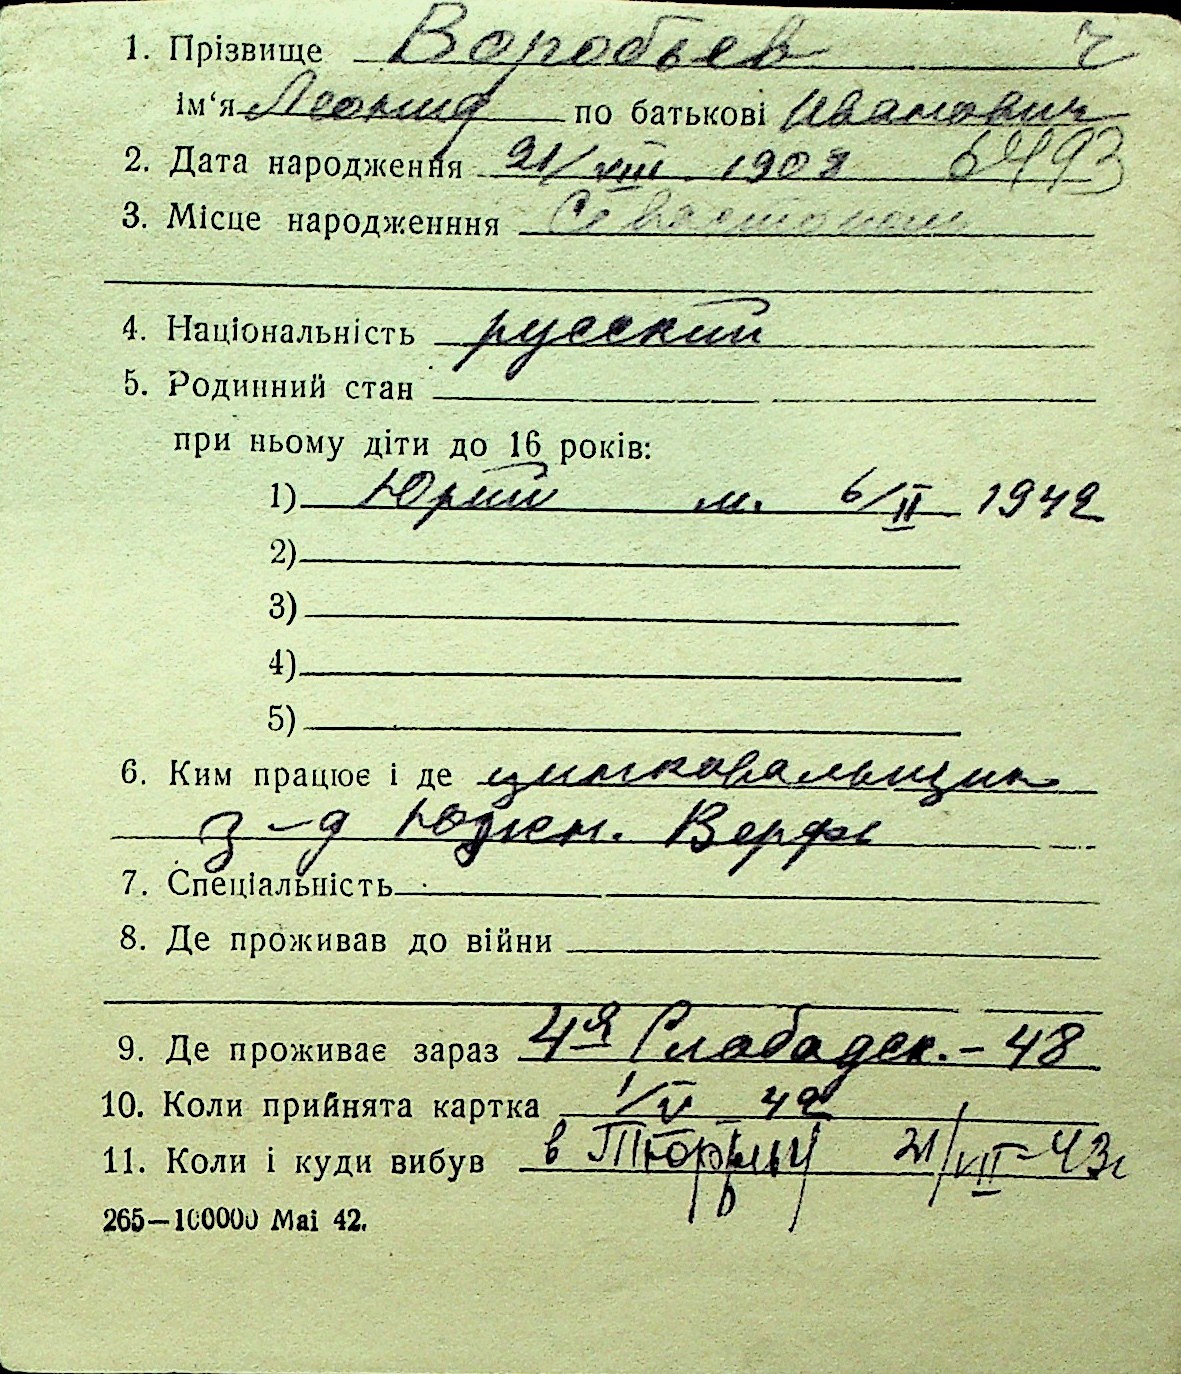 1. Прізвище Воробьев ч
ім‘я Леонид по батькові Иванович
2. Дата народження 21/VIII 1908 6493
3. Місце народженння Севастополь
4. Національність русский
5. Родинний стан
при ньому діти до 16 років:
1) Юрий м. 6/II 1942
2)
3)
4)
5)
6. Ким працює і де цинковальщик
з-д Южн. Верфь
7. Спеціальність
8. Де проживав до війни
9. Де проживає зараз 4я Слободск. - 48
10. Коли прийнята картка 1/V 42
11. Коли і куди вибув в Тюрьму 21/VII-43г
265—100000 Mai 42.